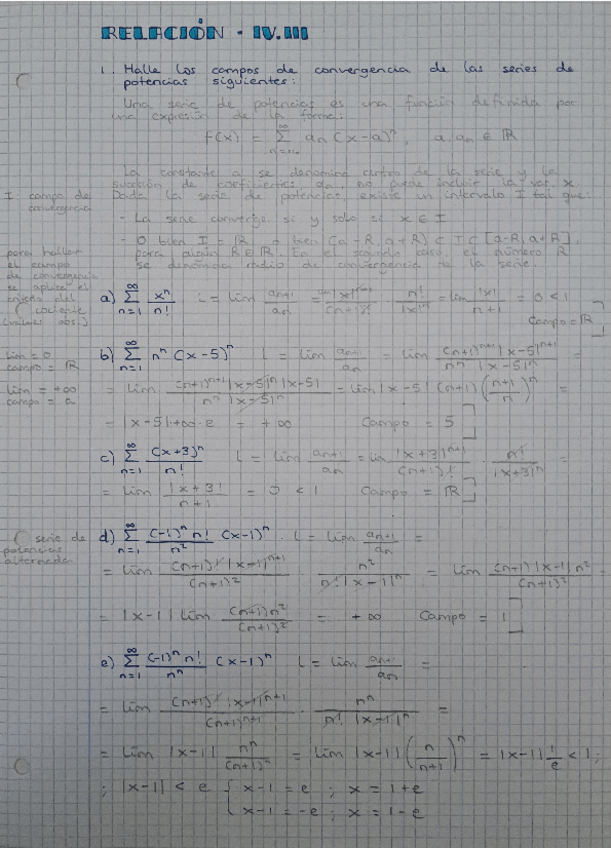 RELACIÓN - IV.III
1. Halle los campos de convergencia de las series de
potencias siguientes:
Una serie de potencias es una función definida por
una expresión de la forma:
f(x) = ∑ an (x-a)ⁿ, a, an ∈ ℝ
La constante a se denomina centro de la serie y la
sucesión de coeficientes, an, no puede incluir la var. x
I campo de
convergencia
Dada la serie de potencias, existe un intervalo I tal que:
- La serie converge si y solo si x ∈ I
- O bien I = ℝ o bien (a-R, a+R) ⊂ I ⊂ [a-R, a+R],
para algún R ∈ ℝ. En el segundo caso, el número R
se denomina radio de convergencia de la serie.
para hallar
el campo
de convergencia
se aplica el
criterio del
cociente
(valores abs.)
a) ∑ n=1 ∞ xⁿ/n! L = lím an+1/an = |x|ⁿ⁺¹/(n+1)! · n!/|x|ⁿ = lím |x|/n+1 = 0 < 1
Campo = ℝ
lím = 0
campo = ℝ
lím = +∞
campo = a
b) ∑ n=1 ∞ nⁿ (x-5)ⁿ L = lím an+1/an = lím (n+1)ⁿ⁺¹ |x-5|ⁿ⁺¹ / nⁿ |x-5|ⁿ =
= lím (n+1)ⁿ⁺¹ |x-5|ⁿ |x-5| / nⁿ |x-5|ⁿ = lím |x-5| (n+1) (n+1/n)ⁿ =
= |x-5| +∞ · e = +∞ Campo = 5
c) ∑ n=1 ∞ (x+3)ⁿ/n! L = lím an+1/an = lím |x+3|ⁿ⁺¹/(n+1)! · n!/|x+3|ⁿ =
= lím |x+3|/n+1 = 0 < 1 Campo = ℝ
serie de
potencias
alternada
d) ∑ n=1 ∞ (-1)ⁿ n!/n² (x-1)ⁿ. L = lím an+1/an =
= lím (n+1)! |x-1|ⁿ⁺¹/(n+1)² n²/n! |x-1|ⁿ = lím (n+1) |x-1| n²/(n+1)² =
= |x-1| lím (n+1) n²/(n+1)² = +∞ Campo = 1
e) ∑ n=1 ∞ (-1)ⁿ n!/nⁿ (x-1)ⁿ L = lím an+1/an =
= lím (n+1)! |x-1|ⁿ⁺¹/(n+1)ⁿ⁺¹ · nⁿ/n! |x-1|ⁿ =
= lím |x-1| nⁿ/(n+1)ⁿ = lím |x-1| (n/n+1)ⁿ = |x-1| 1/e < 1;
; |x-1| < e { x-1 = e ; x = 1+e
x-1 = -e ; x = 1-e